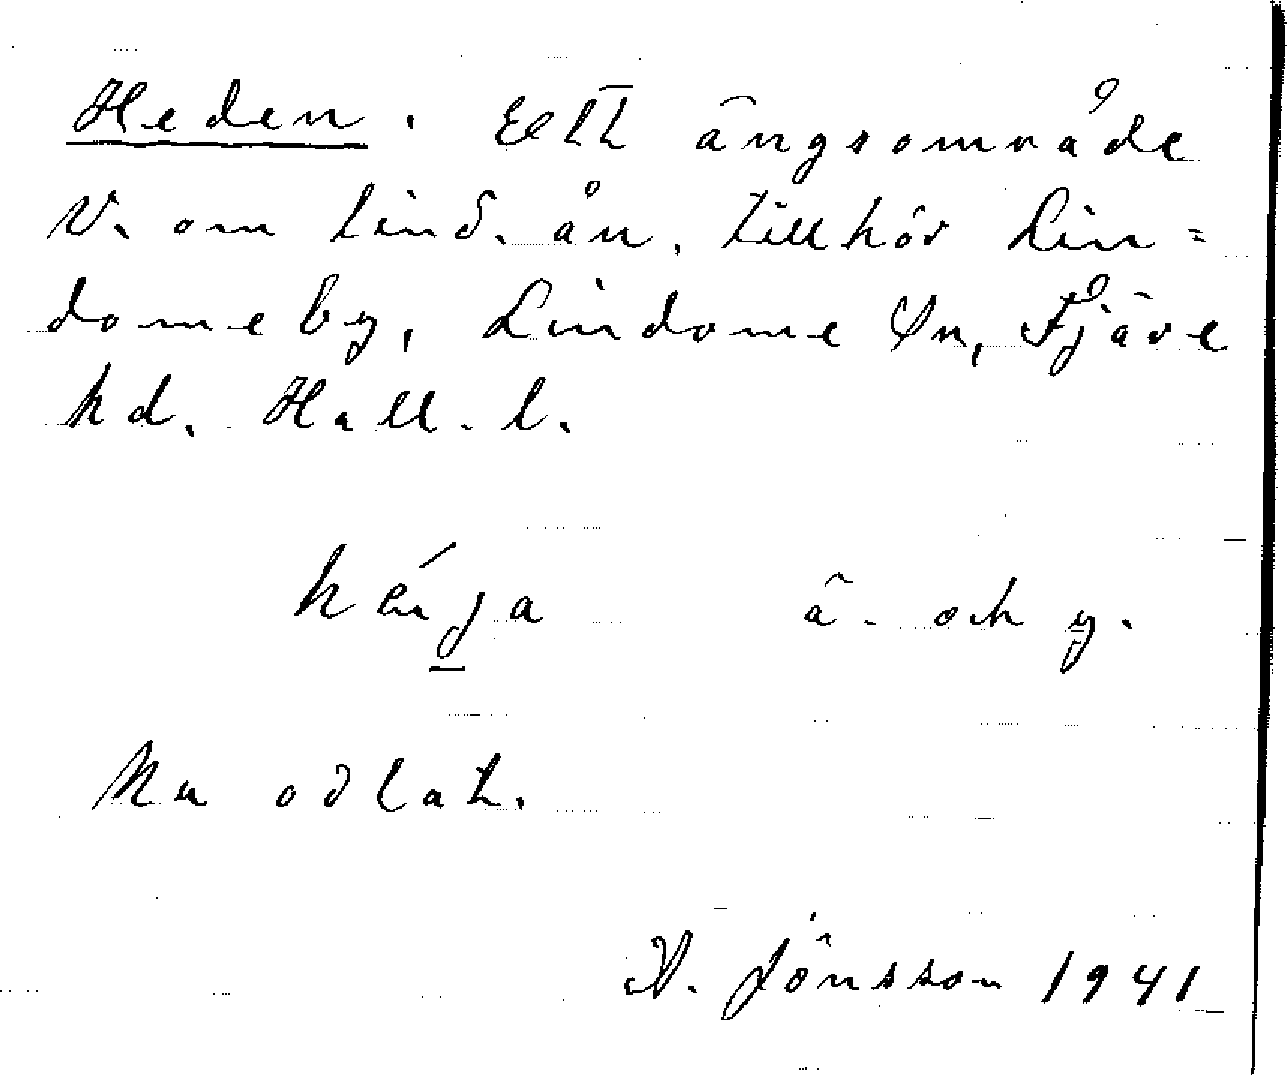 Heden. Ett ängsområde
V. om Lind. ån, tillhör Lin=
dome by, Lindome Sn, Fjäre
hd. Hall. l.
ä. och y.
Nu odlat.
N. Jönsson 1941